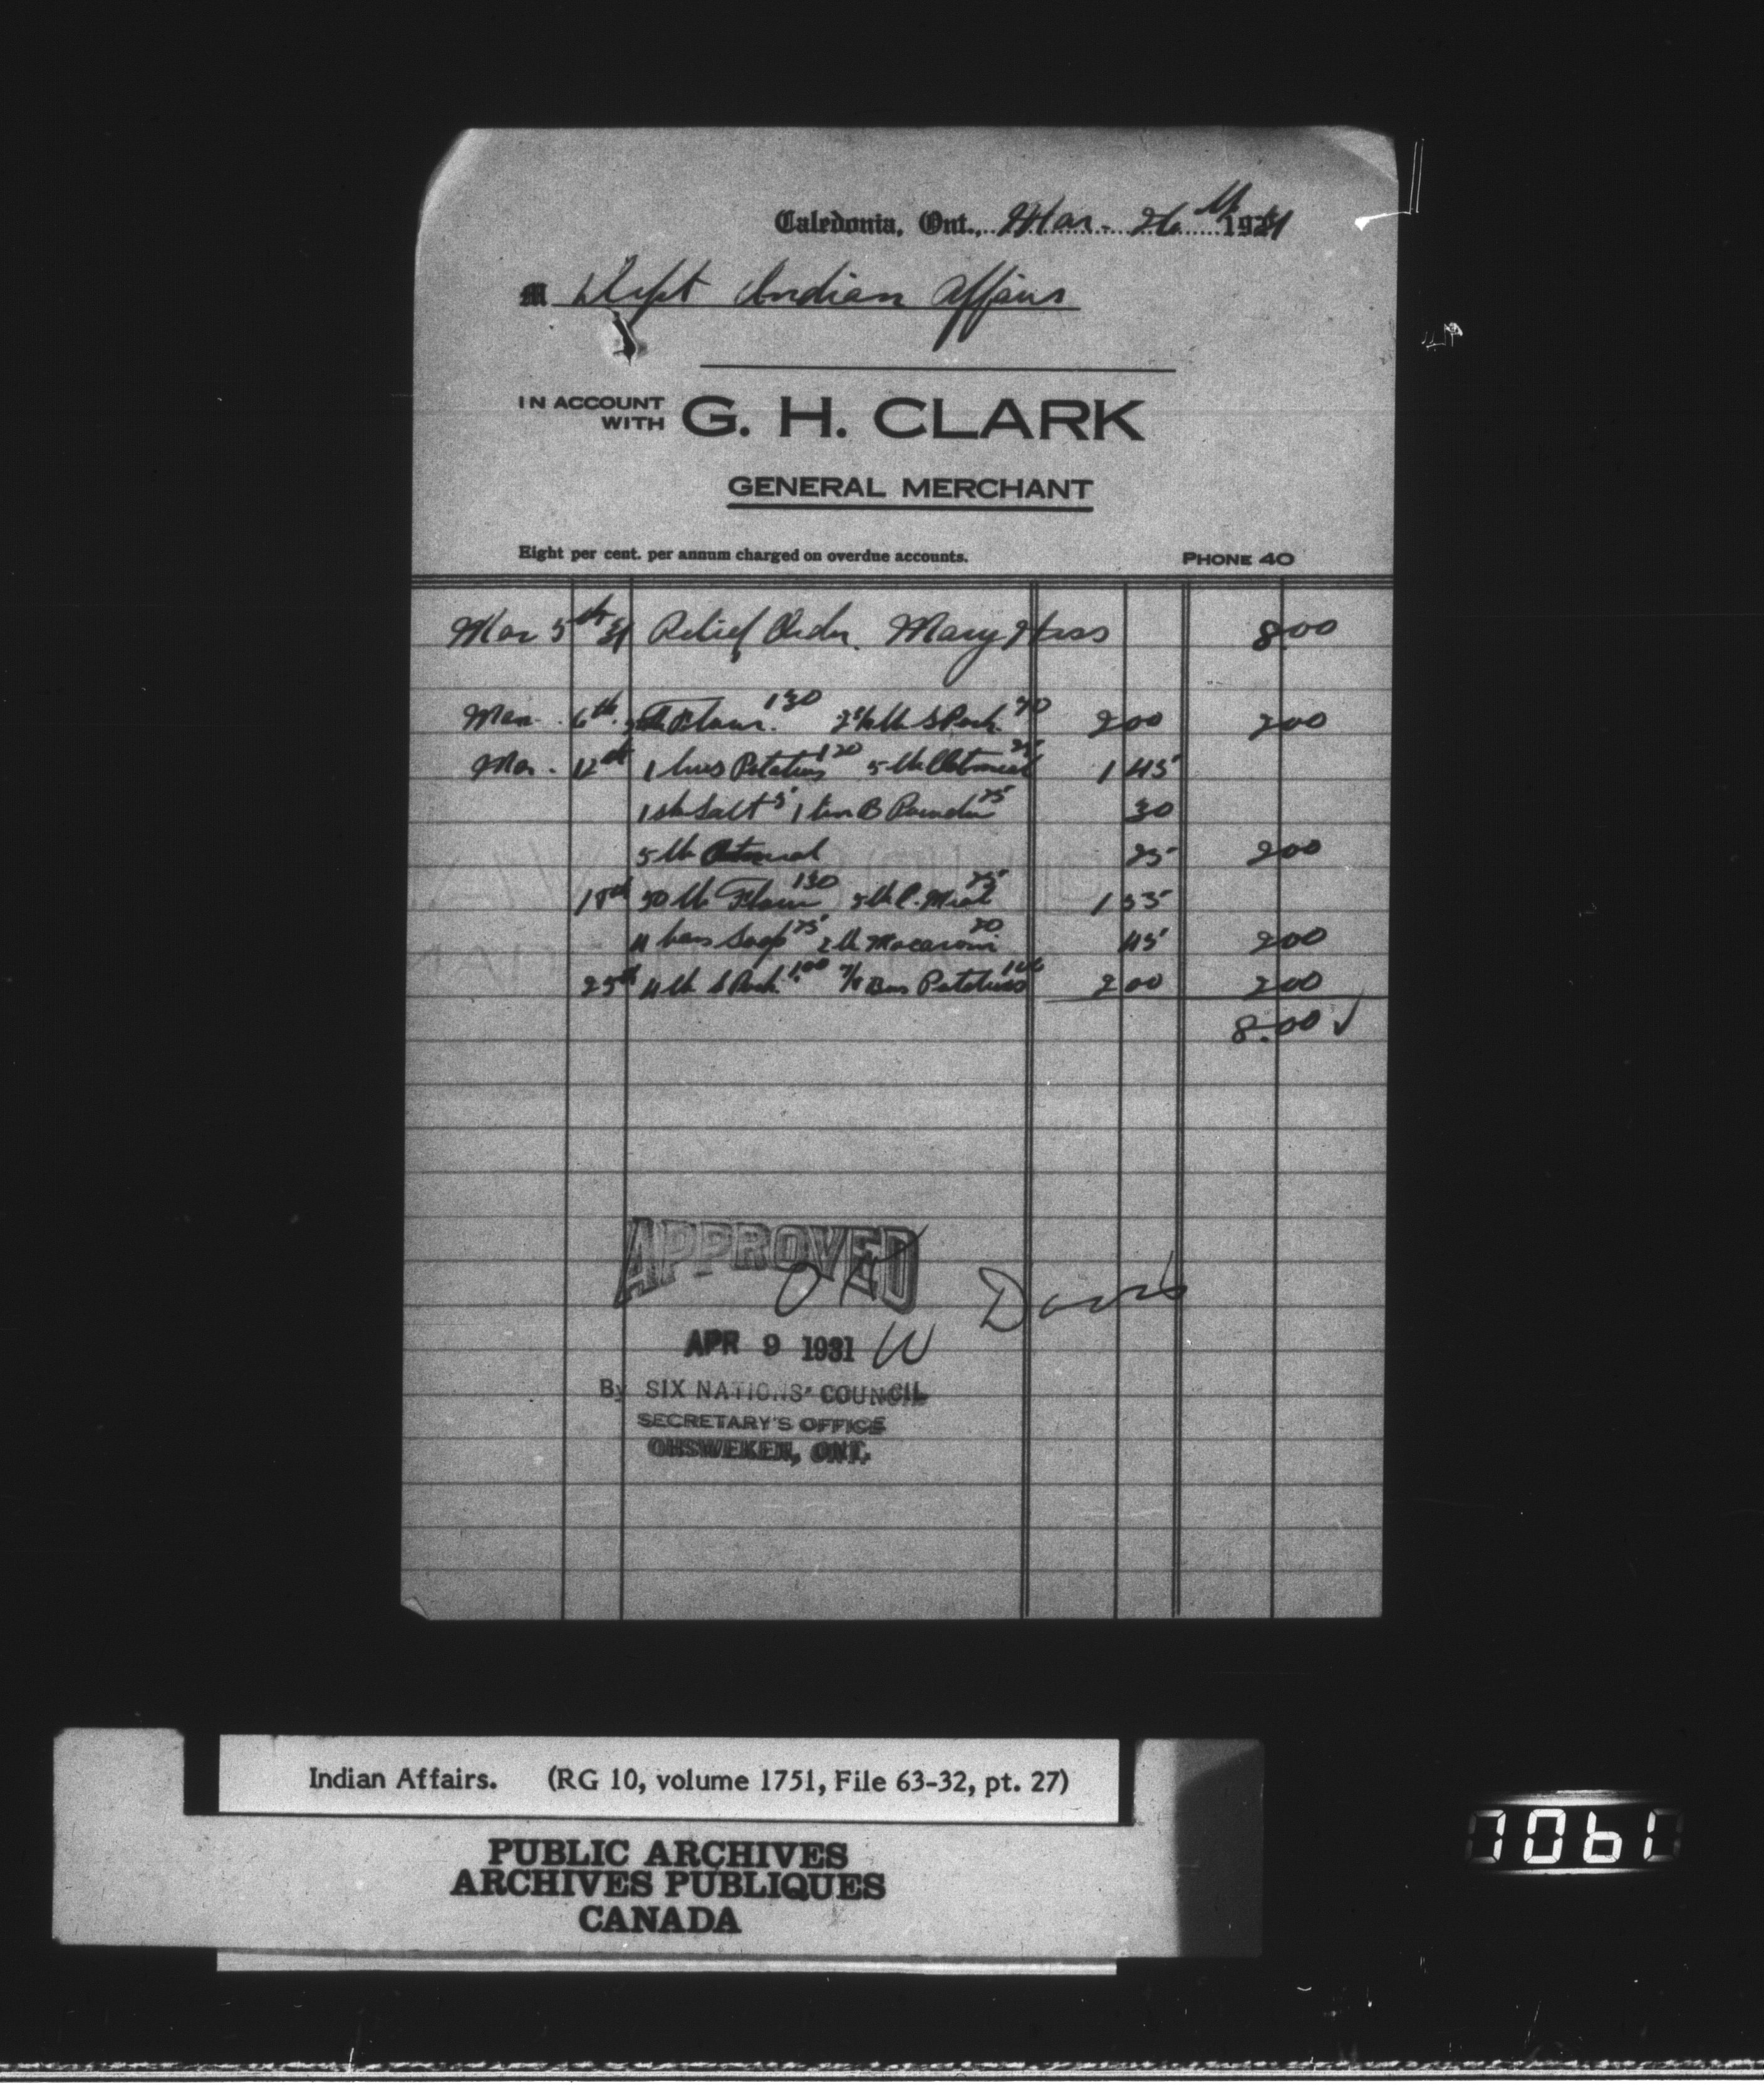 Caledonia, Ont., Mar. 26th 1931
M Dept Indian Affairs
IN ACCOUNT WITH G. H. CLARK
GENERAL MERCHANT
Eight per cent. per annum charged on overdue accounts. PHONE 40
Mar 5th 31 Relief Order. Mary Hess 8.00
Mar. 6th Flour 130 2 1/2 lb S Pork 70 2 00 2 00
Mar. 12th 1 bus Potatoes 120 5 lb Oatmeal 25 1 45
1 sk Salt 5 1 tin B Powder 25 30
5 lb Oatmeal 25 2 00
18th 50 lb Flour 130 5 lb C. Meal 25 1 55
4 bars Soap 25 2 lb Macaroni 20 45 2 00
25th 4 lb S Pork 1.00 Bus Potatoes 100 2 00 2 00
8.00 ✓
APPROVED
OK
W Davis
APR 9 1931
By SIX NATIONS' COUNCIL
SECRETARY'S OFFICE
OHSWEKEN, ONT.
Indian Affairs. (RG 10, volume 1751, File 63-32, pt. 27)
PUBLIC ARCHIVES
ARCHIVES PUBLIQUES
CANADA